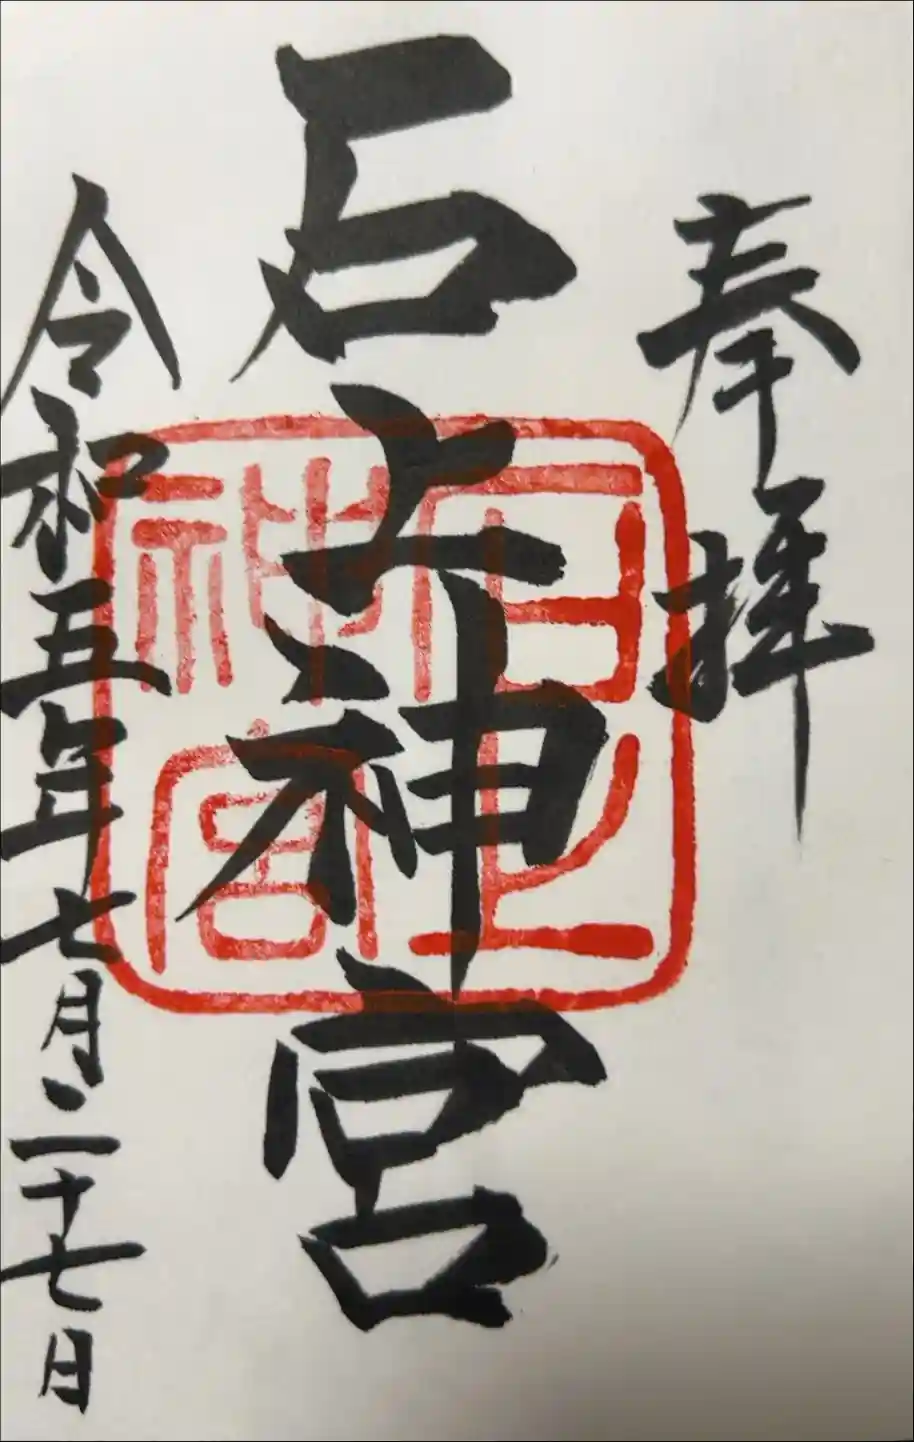 奉拝
石上神宮
石上神宮
令和五年七月二十七日